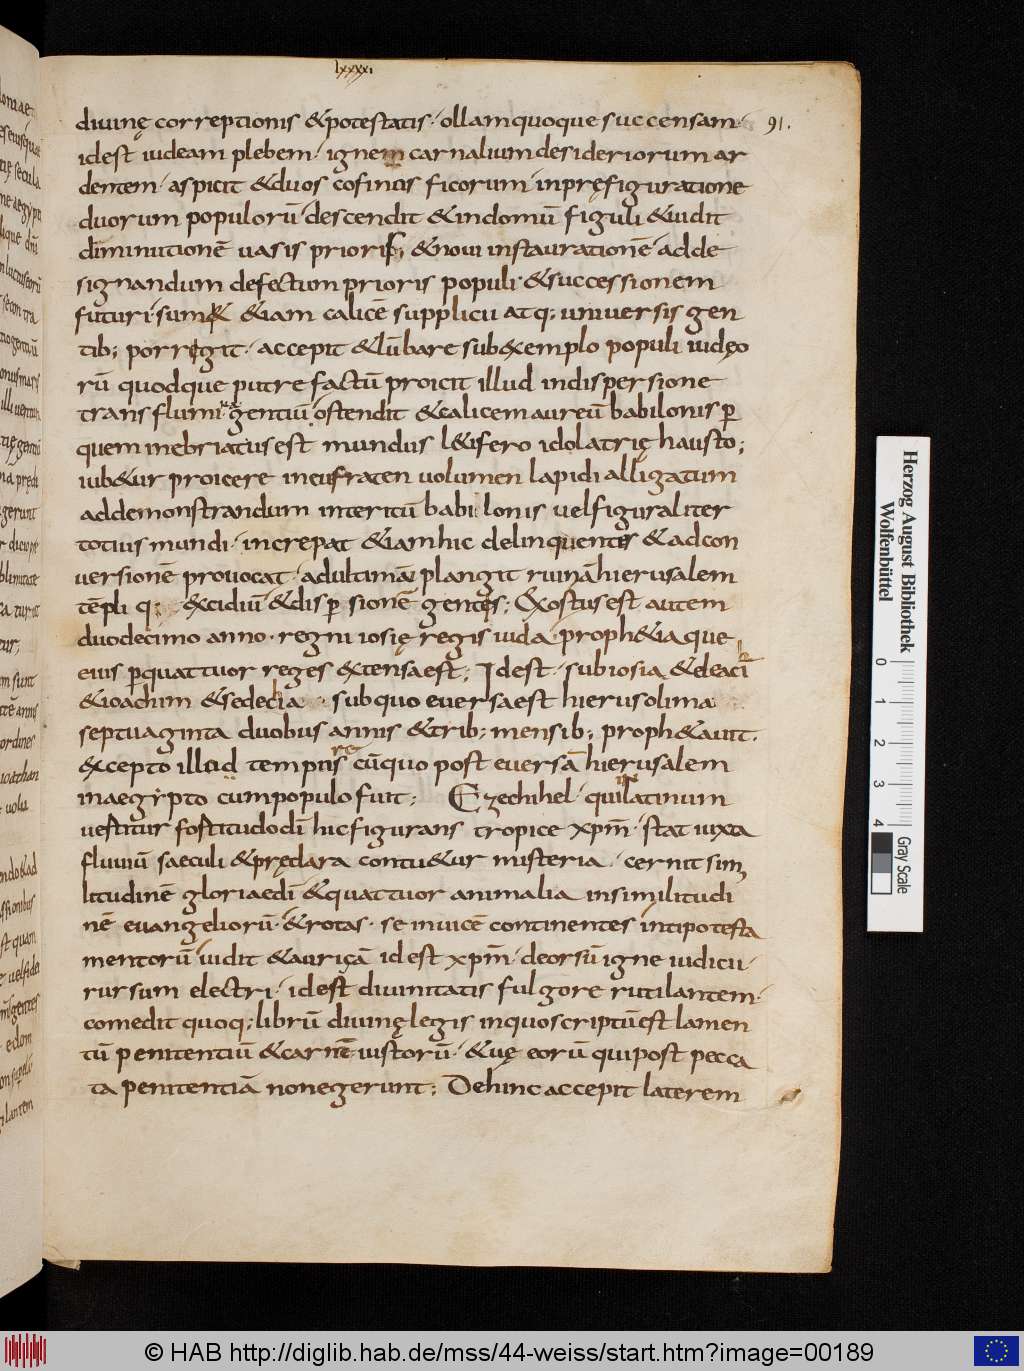 lxxxxi
diuinę correptionis &potestatis · ollam quoque succensam · 91.
idest iudeam plebem · ignem carnalium desideriorum ar
dentem · aspicit &duos cofinos ficorum inpręfiguratione
duorum populorū descendit &indomū figuli &uidit
diminutionē uasis prioris; &noui instaurationē adde
signandum defectum prioris populi · &successionem
futuri · sum& &iam calicē supplicii atq; uniuersis gen
tib; porregit · accepit &lūbare sub&emplo populi iudęo
rū quodque putrefactū proicit illud indispersione
trans flumina gentiū ostendit &calicem aureū babilonis p̄
quem inebriatus est mundus l&ifero idolatrię hausto;
iub&ur proicere ineufraten uolumen lapidi alligatum
addemonstrandum interitū babilonis uel figuraliter
totius mundi · increpat &iam hic delinquentes &adcon
uersionē prouocat · adultimā plangit ruinā hierusalem
tēpli q; &cidiū &dispersionē gentes; Exostus est autem
duodecimo anno · regni iosię regis iuda · proph&ia que
eius p̄ quattuor reges &tensa est; Idest · sub iosia &deacī
&ioachim &sedechia · sub quo euersa est hierusolima
septuaginta duobus annis &trib; mensib; proph&auit ·
&cepto illud temporis cūquo post euersā hierusalem
inaegypto cum populo fuit; Ezechihel · qui inlatinum
uestitur fostitudo dī hic figurans tropice xpm̄ · stat iuxta
fluuiū saeculi &pręclara contu&ur misteria · cernit simi
litudinē gloriae dī &quattuor animalia insimilitudi
nē euangeliorū · &rotas · se inuicē continentes intipo testa
mentorū uidit &aurigā idest xpm̄ · deorsū igne iudicii ·
rursum electri · idest diuinitatis fulgore rutilantem ·
comedit quoq; librū diuinę legis inquo scriptū est lamen
tū penitentiū &carmē iustorū · &uę eorū qui post pecca
ta penitentiā non egerunt; Dehinc accepit laterem
Herzog August Bibliothek
Wolfenbüttel
0 1 2 3 4
Gray Scale
© HAB http://diglib.hab.de/mss/44-weiss/start.htm?image=00189